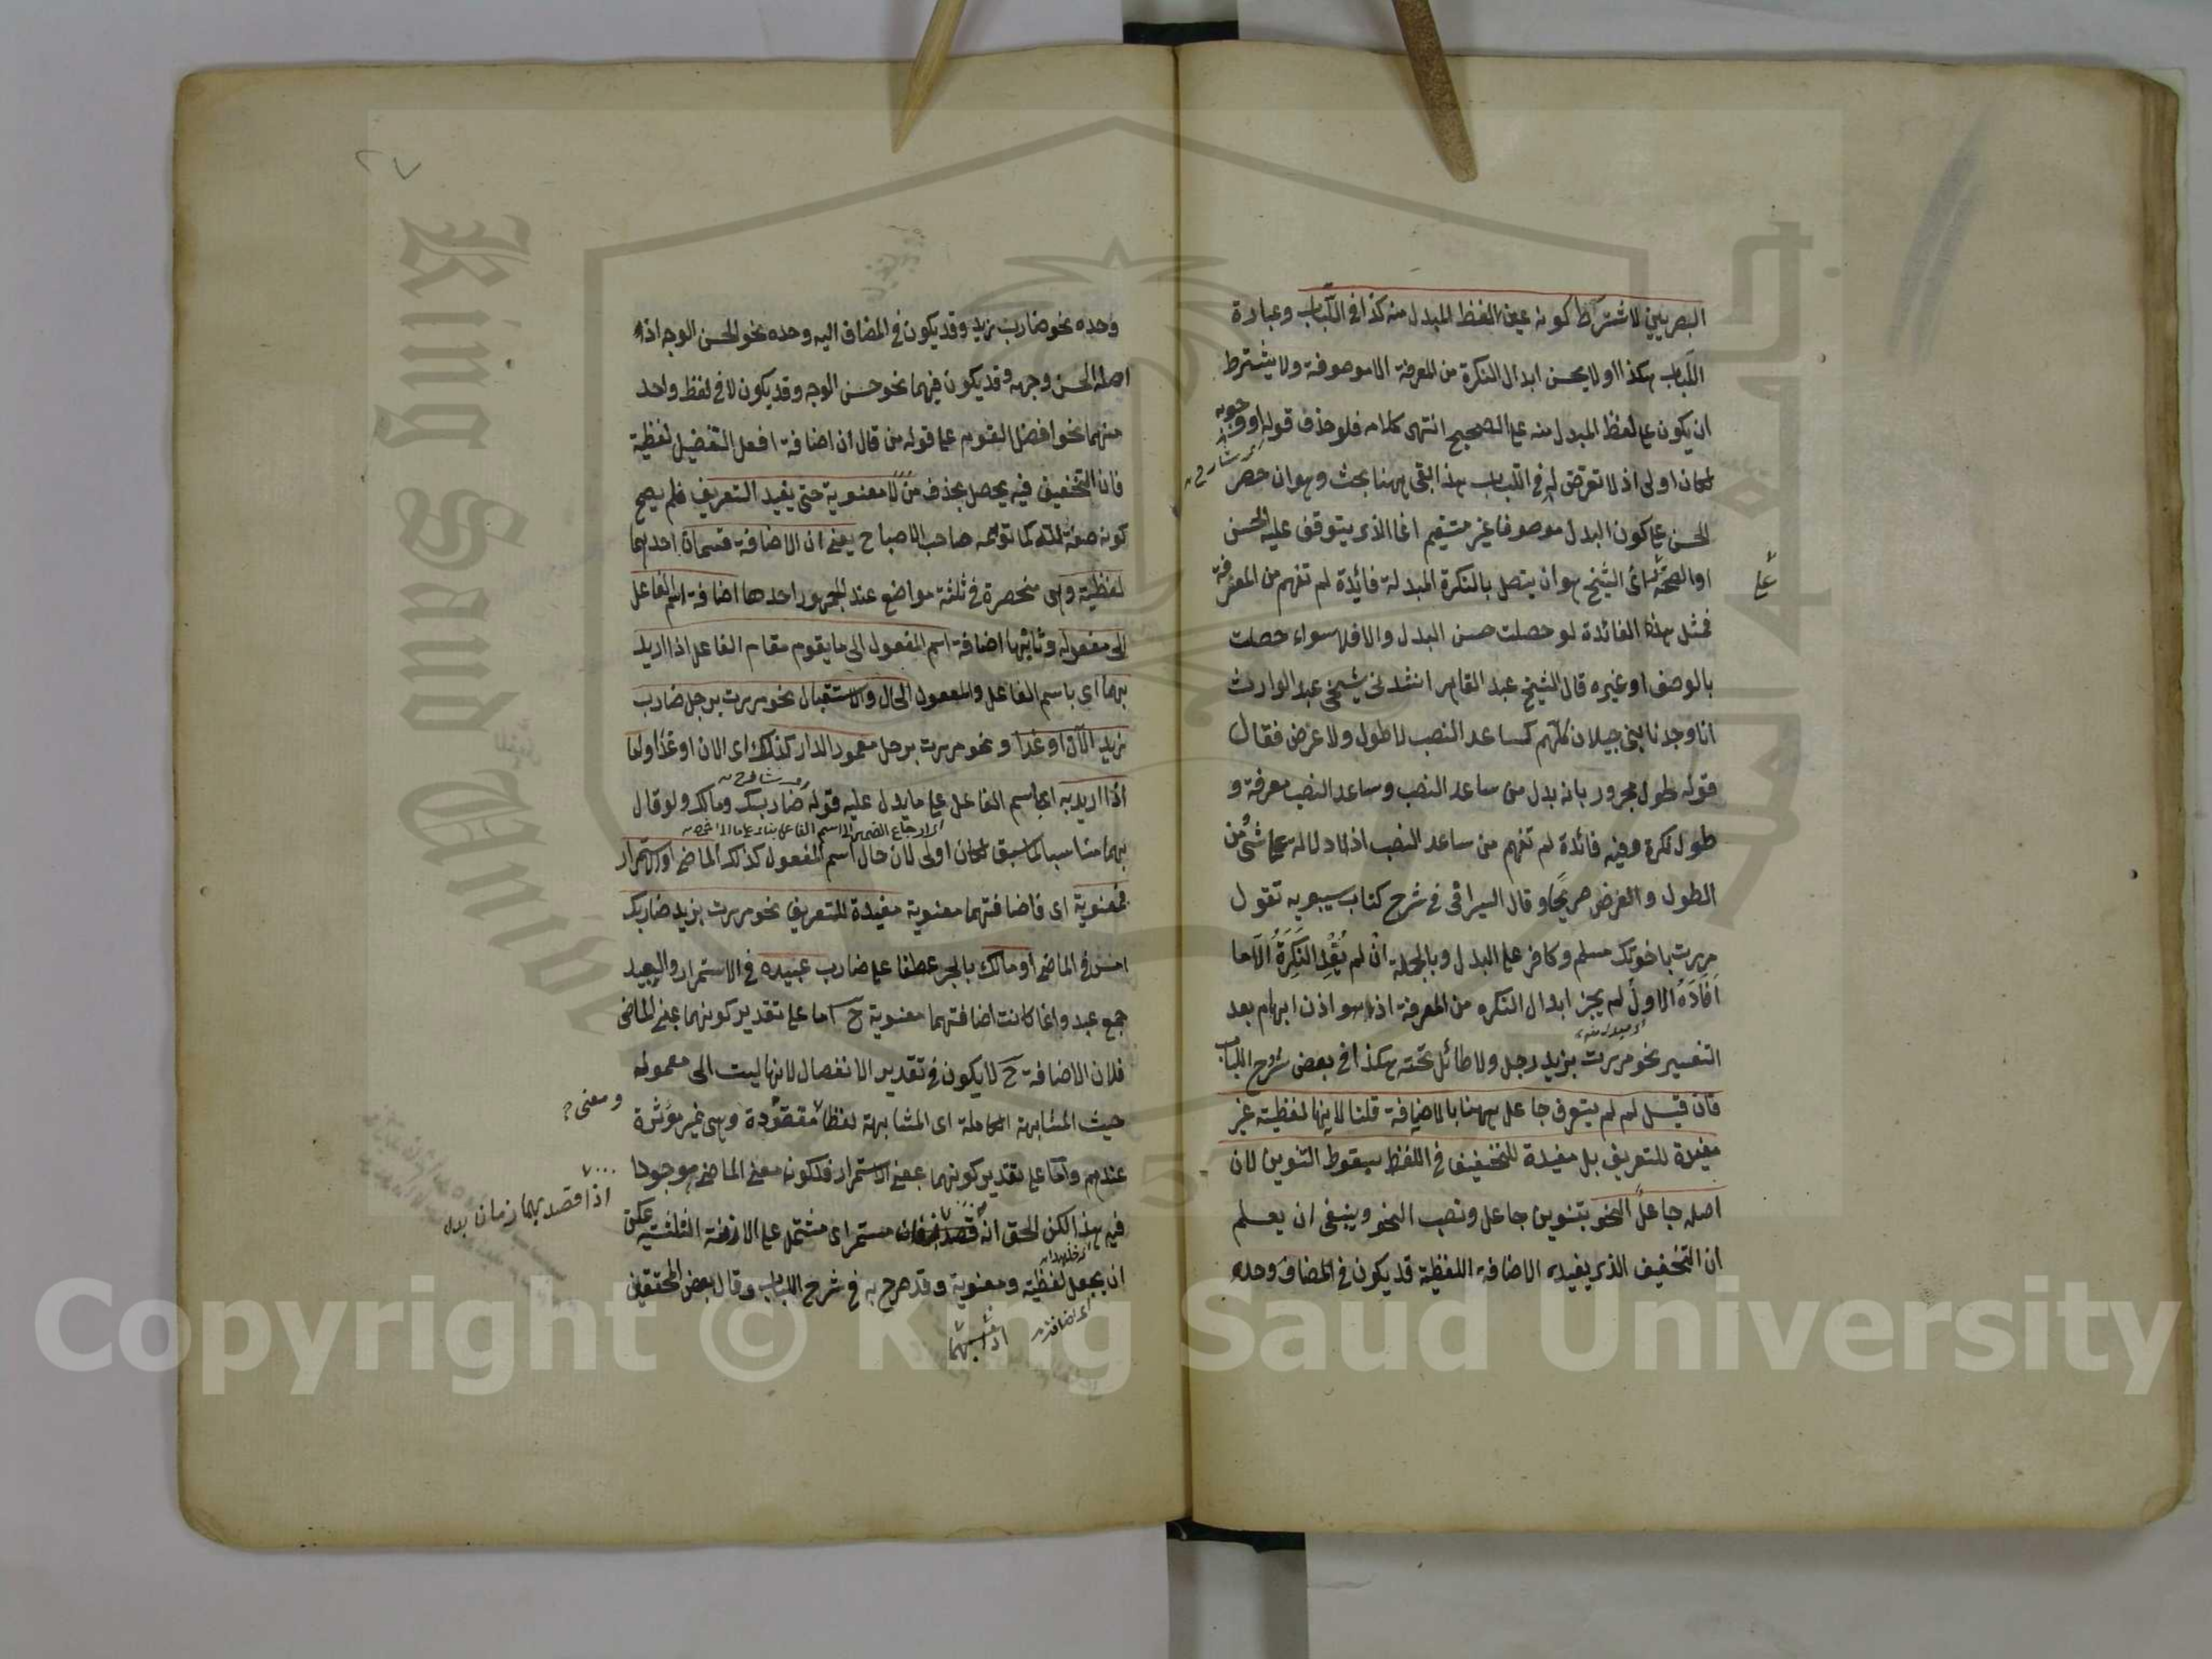 البصريين لاشتراط كونه عين اللفظ المبدل منه كذا في اللباب وعبارة
اللباب هكذا اولا يحسن ابدال النكرة من المعرفة الا موصوفة ولا يشترط
ان يكون على لفظ المبدل منه على الصحيح انتهى كلامه فلو حذف قوله او وجوبه
لكان اولى اذ لا تعرض له في اللباب هذا بقى ههنا بحث وهو ان حصر
الحسن على كون البدل موصوفا غير مستقيم انما الذى يتوقف عليه الحسن
او الصحة الشيخ هو ان يتصل بالنكرة المبدلة فائدة لم تفهم من المعرفة
فمثل هذه الفائدة لو حصلت حسن البدل والا فلا سواء حصلت
بالوصف او غيره قال الشيخ عبد القاهر انشدنى شيخى عبد الوارث
انا وجدنا بنى جيلان كلهم كساعد الضب لا طول ولا عرض فقال
قوله طول مجرور بانه بدل من ساعد الضب وساعد الضب معرفة و
طول نكرة وفيه فائدة لم تفهم من ساعد الضب اذ لا دلالة على شئ من
الطول والعرض صريحا وقال السيرافى فى شرح كتاب سيبويه تقول
مررت باخوتك مسلم وكافر على البدل وبالجملة ان لم تفد النكرة الا ما
افاده الاول لم يجز ابدال النكره من المعرفة اذ هو اذن ابهام بعد
التفسير نحو مررت بزيد رجل ولا طائل تحته هكذا فى بعض شروح اللباب
فان قيل لم لم يتعرف جاعل ههنا بالاضافة قلنا لانها لفظية غير
مفيدة للتعريف بل مفيدة للتخفيف فى اللفظ بسقوط التنوين لان
اصله جاعل النحو بتنوين جاعل ونصب النحو وينبغى ان يعلم
ان التخفيف الذى يفيده الاضافة اللفظية قد يكون فى المضاف وحده
٢٧
وحده نحو ضارب زيد وقد يكون فى المضاف اليه وحده نحو الحسن الوجه اذ
اصله الحسن وجهه وقد يكون فيهما نحو حسن الوجه وقد يكون لا فى لفظ واحد
منهما نحو افضل القوم على قوله من قال ان اضافة افعل التفضيل لفظية
فان التخفيف فيه يحصل بحذف من لا معنوية حتى يفيد التعريف فلم يصح
كونه صفة لله كما توهمه صاحب الاصباح يعنى ان الاضافة قسمان احدهما
لفظية وهى منحصرة فى ثلثة مواضع عند الجمهور احدها اضافة اسم الفاعل
الى مفعوله وثانيها اضافة اسم المفعول الى ما يقوم مقام الفاعل اذا اريد
بهما اى باسم الفاعل والمفعول الحال والاستقبال نحو مررت برجل ضارب
زيد الآن او غدا ونحو مررت برجل معمور الدار كذلك اى الان او غدا واما
اذا اريد به اى باسم الفاعل على ما يدل عليه قوله ضاربك ومالك ولو قال
اى ارجاع الضمير الى اسم الفاعل بناء على
بهما مناسبا لما سبق لكان اولى لان حال اسم المفعول كذلك الماضى او الاستمرار
فمعنوية اى فاضافتهما معنوية مفيدة للتعريف نحو مررت بزيد ضاربك
امس فى الماضى او مالك بالجر عطفا على ضارب عبيده فى الاستمرار والعبيد
جمع عبد وانما كانت اضافتهما معنوية ح اما على تقدير كونهما بمعنى الماضى
فلان الاضافة ح لا يكون فى تقدير الانفصال لانها ليست الى معموله
حيث المشابهة الكاملة اى المشابهة لفظا مفقودة وهى غير مؤثرة
ومعنى
عندهم واما على تقدير كونهما بمعنى الاستمرار فلكون معنى الماضى موجودا
فيه هذا لكن الحق انه مستمر اى مشتمل على الازمنة الثلثة يمكن
اذا قصد بهما زمان
ان يجعل لفظية ومعنوية وقد صرح به فى شرح اللباب وقال بعض المحققين
اى اضافته
Copyright © King Saud University